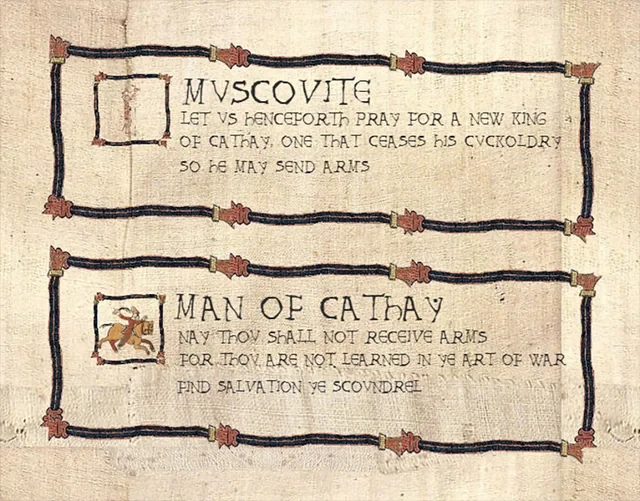 MVSCOVITE
LET VS hENCEFORTH PRAY FOR A NEW KING
OF CAThAY, ONE THAT CEASES hIS CVCKOLDRY
SO hE MAY SEND ARMS
MAN OF CAThAY
NAY ThOV ShALL NOT RECEIVE ARMS
FOR ThOV ARE NOT LEARNED IN YE ART OF WAR
FIND SALVATION YE SCOVNDREL